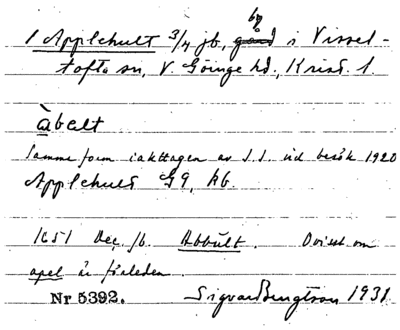 by
1 Applehult 3/4 jb, gård i Vissel-
tofta sn, V. Göinge hd, Krist. l.
àbelt
Samma form iakttagen av S.I. vid besök 1920
Applehult G9, kb.
1651 Dec. jb. Abbult. Ovisst om
apel är förleden.
Nr 5392. Sigvard Bengtson 1931.